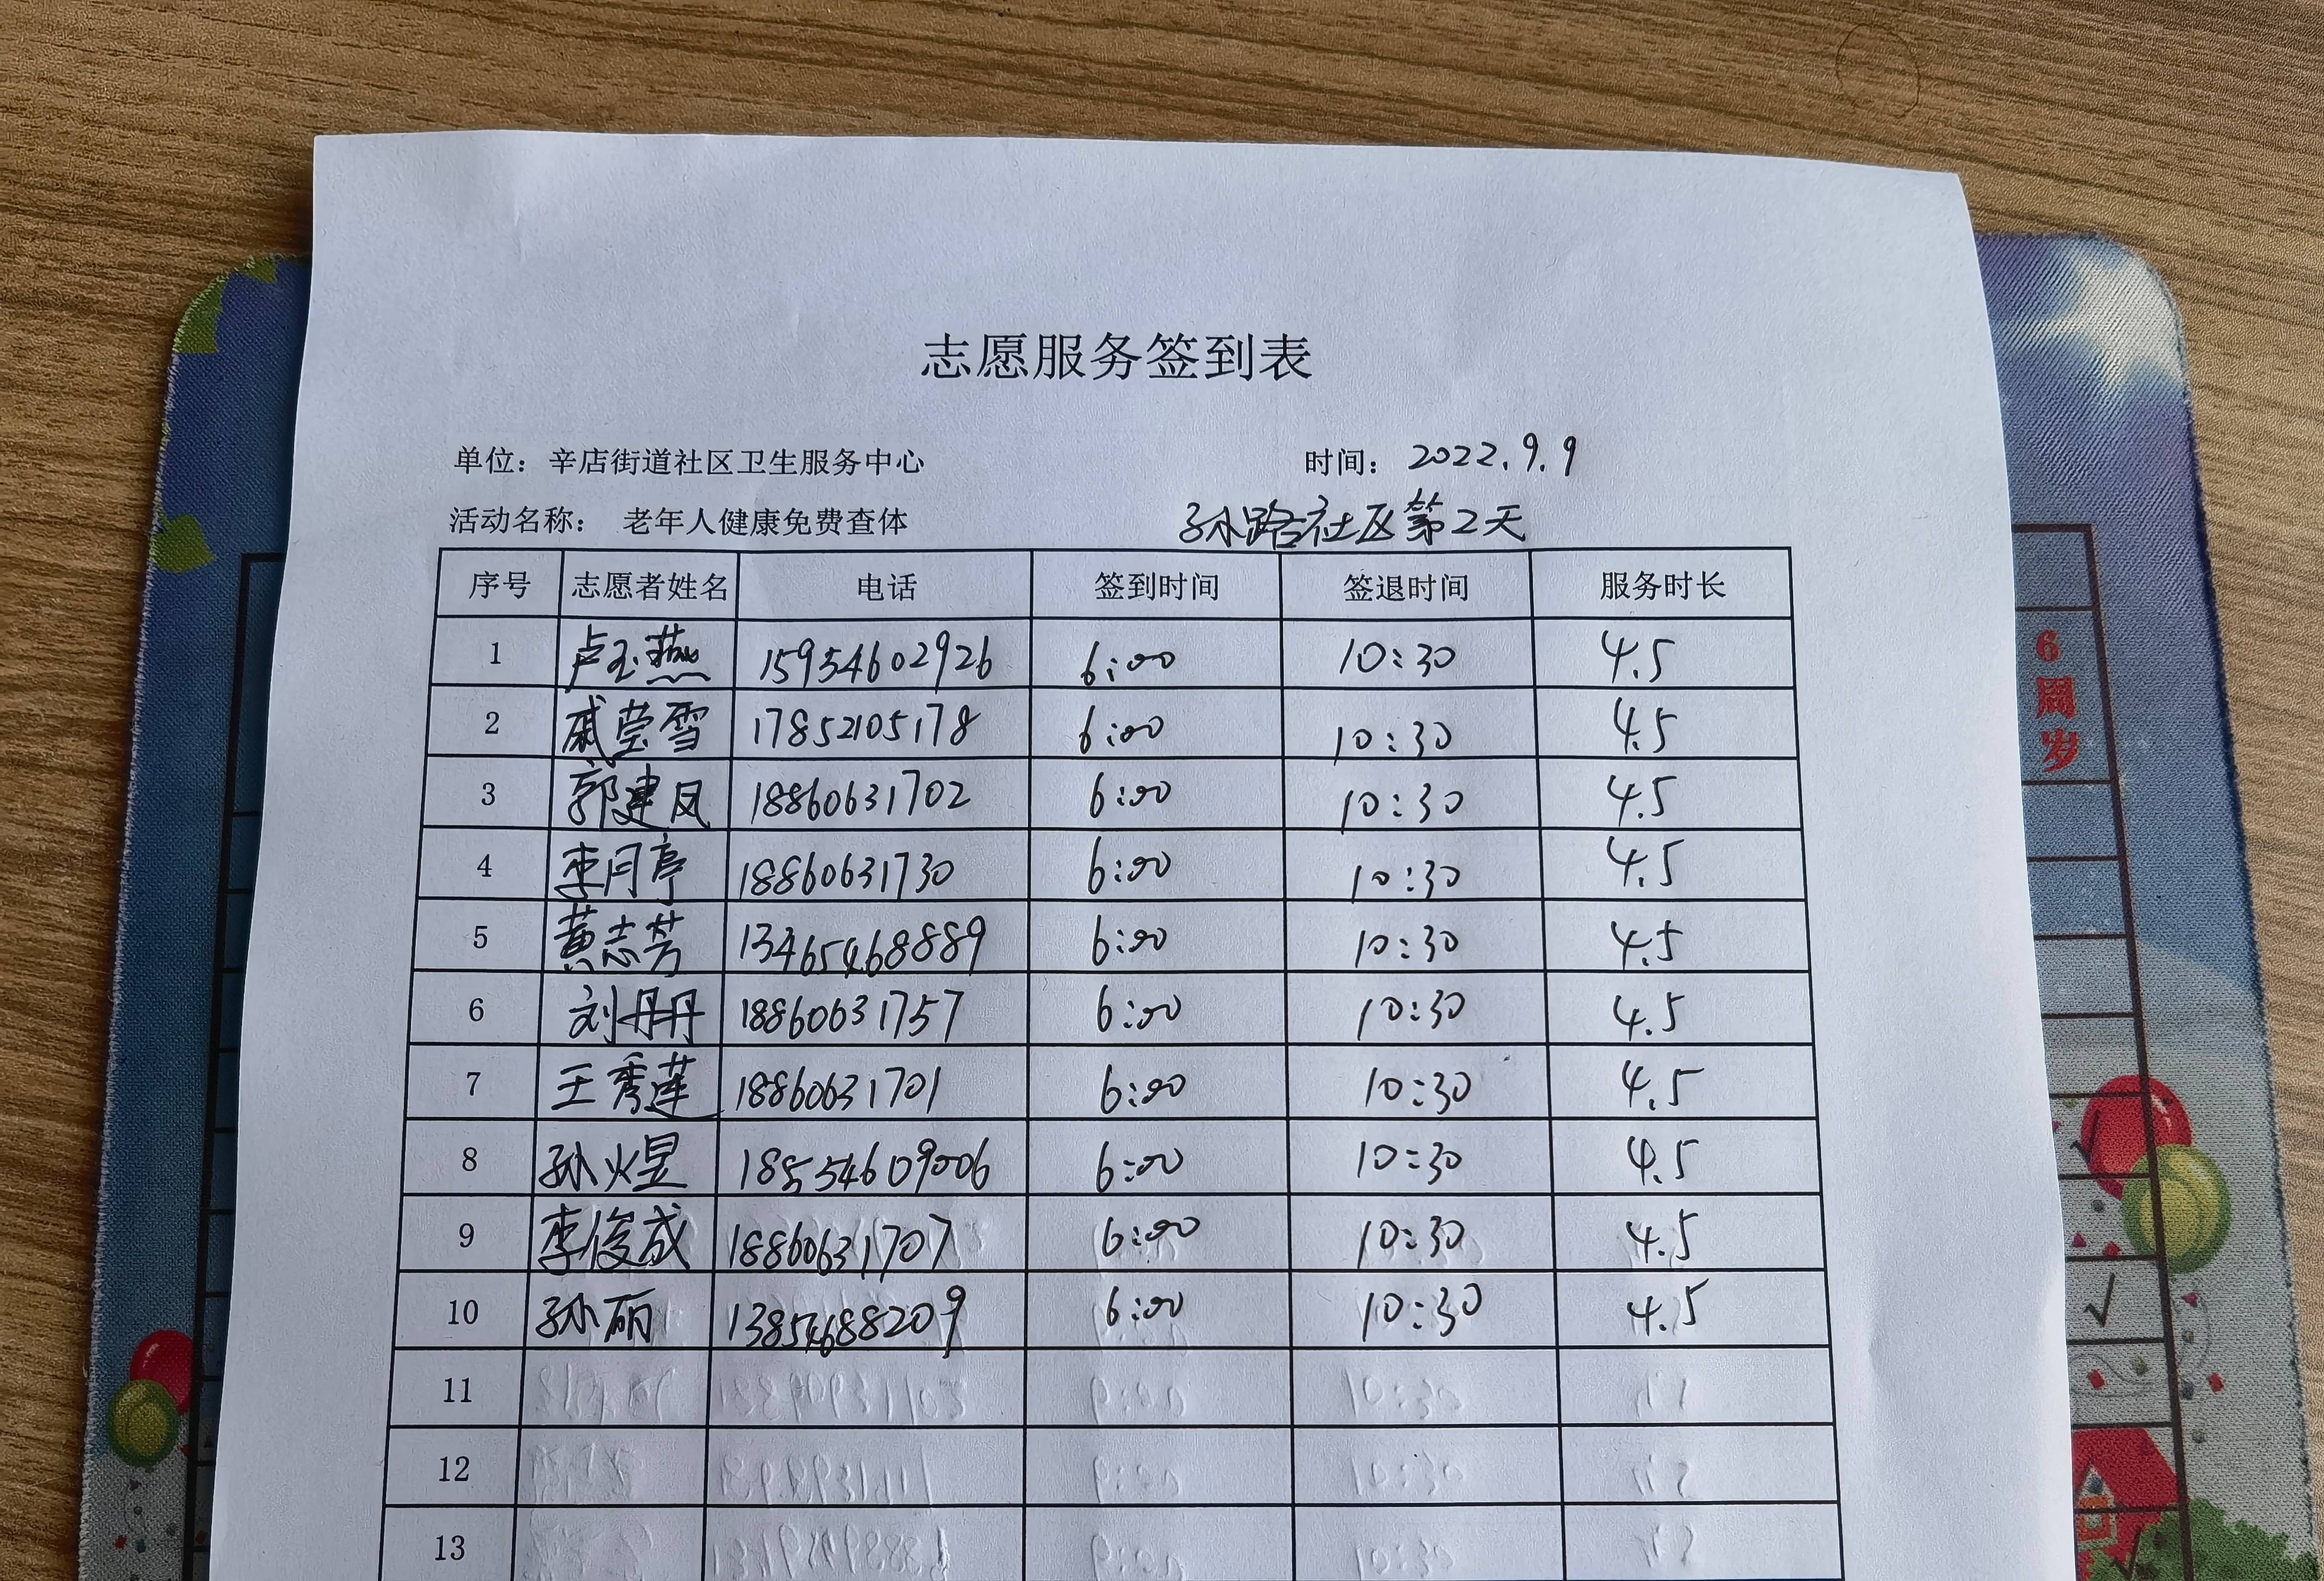 志愿服务签到表
单位：辛店街道社区卫生服务中心 时间：2022.9.9
活动名称： 老年人健康免费查体 孙路社区第2天
序号 志愿者姓名 电话 签到时间 签退时间 服务时长
1 卢玉燕 15954602926 6:00 10:30 4.5
2 戚莹雪 17852105178 6:00 10:30 4.5
3 郭建凤 18860631702 6:00 10:30 4.5
4 李月亭 18860631730 6:00 10:30 4.5
5 黄志芳 13465468889 6:00 10:30 4.5
6 刘丹丹 18860631757 6:00 10:30 4.5
7 王秀莲 18860631701 6:00 10:30 4.5
8 孙煜 18554609006 6:00 10:30 4.5
9 李俊成 18860631707 6:00 10:30 4.5
10 孙丽 13854688209 6:00 10:30 4.5
11
12
13
6周岁